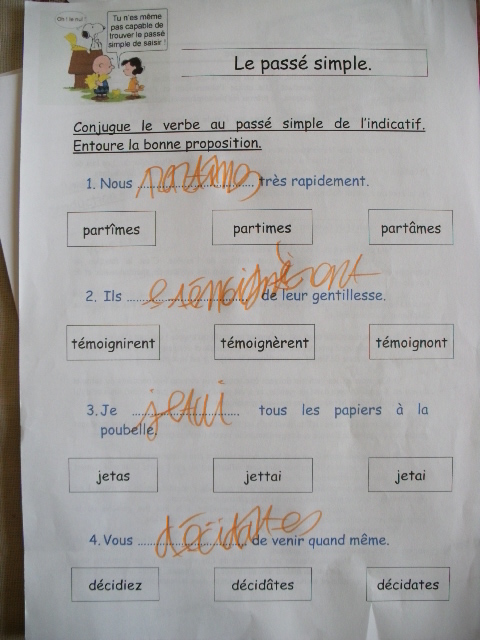 Oh ! le nul !
Tu n'es même
pas capable de
trouver le passé
simple de saisir !
Le passé simple.
Conjugue le verbe au passé simple de l'indicatif.
Entoure la bonne proposition.
1. Nous .............................. très rapidement.
partîmes partimes partâmes
2. Ils .............................. de leur gentillesse.
témoignirent témoignèrent témoignont
3. Je .............................. tous les papiers à la
poubelle.
jetas jettai jetai
4. Vous décidates de venir quand même.
décidiez décidâtes décidates